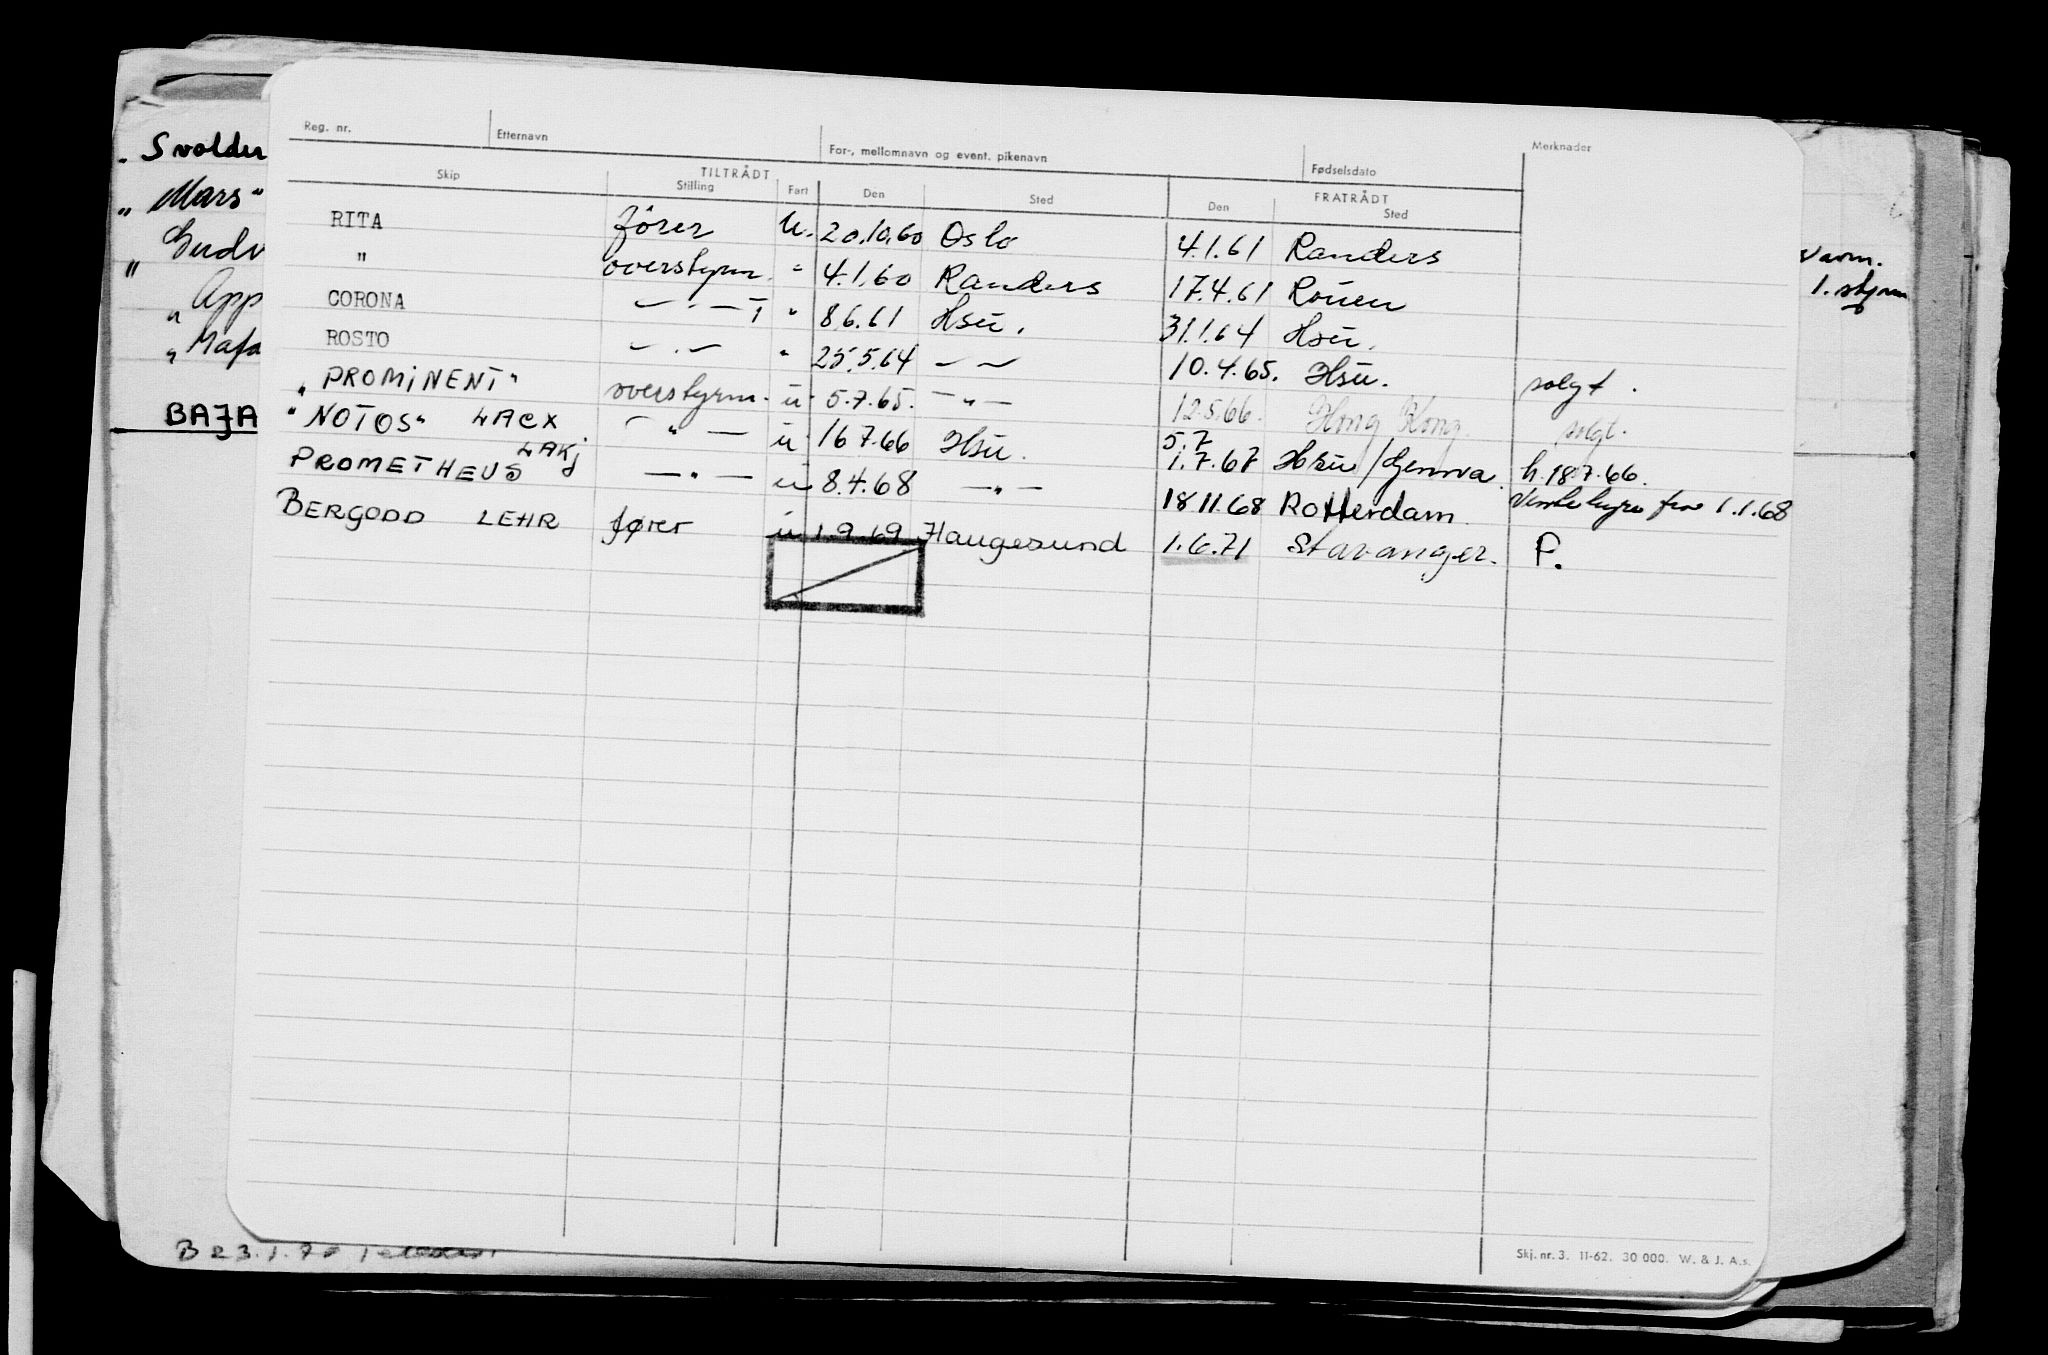 Reg. nr. Etternavn For-, mellomnavn og event. pikenavn Fødselsdato Merknader
TILTRÅDT FRATRÅDT
Skip Stilling Fart Den Sted Den Sted
RITA fører u. 20.10.60 Oslo 4.1.61 Randers
" overstyrm. " 4.1.60 Randers 17.4.61 Rouen
CORONA — " — " 8.6.61 Hsu. 31.1.64 Hsu.
ROSTO — " — " 25.5.64 — — 10.4.65. Hsu. solgt.
"PROMINENT" overstyrm. u 5.7.65. — " — 12.5.66. Hong Kong. solgt.
"NOTOS" LACX — " — u 16.7.66 Hsu. 5.7
1.7.67 Hsu/Genova. h. 18.7.66.
LAKJ
PROMETHEUS — " — u 8.4.68 — " — 18.11.68 Rotterdam. Ventehyre fra 1.1.68
BERGODD LEHR fører u 1.9.69 Haugesund 1.6.71 Stavanger. P.
Skj. nr. 3. 11-62. 30 000. W. & J. A.s.
. Svolder
" Mars"
" Gudv
" App
" Mafa
BAJA
varm.
1. styrm
B 23.1.70